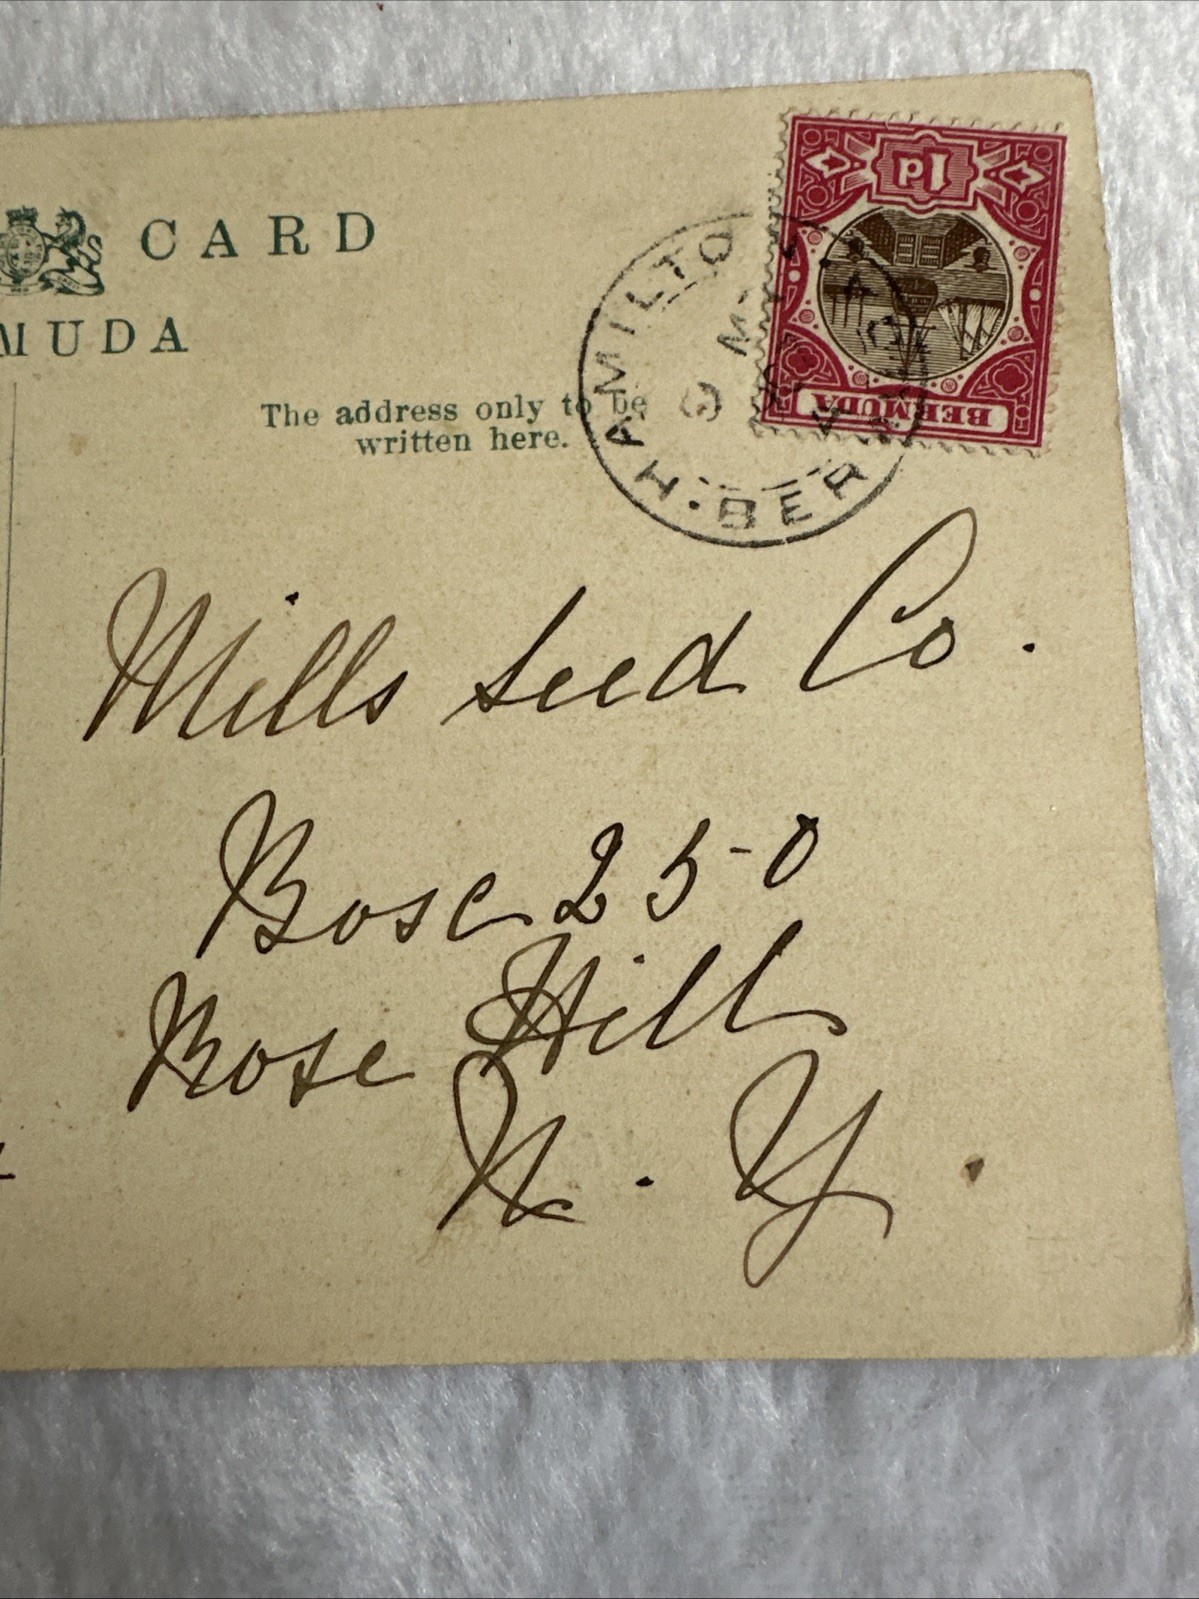 CARD
MUDA
The address only to be
written here.
1d
BERMUDA
HAMILTON BER
Mills Seed Co.
Bose 250
Rose Hill
N. Y.